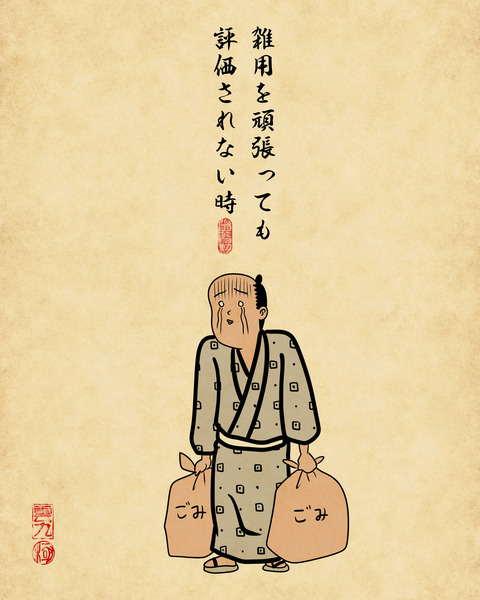 雑用を頑張っても
評価されない時
ごみ
ごみ